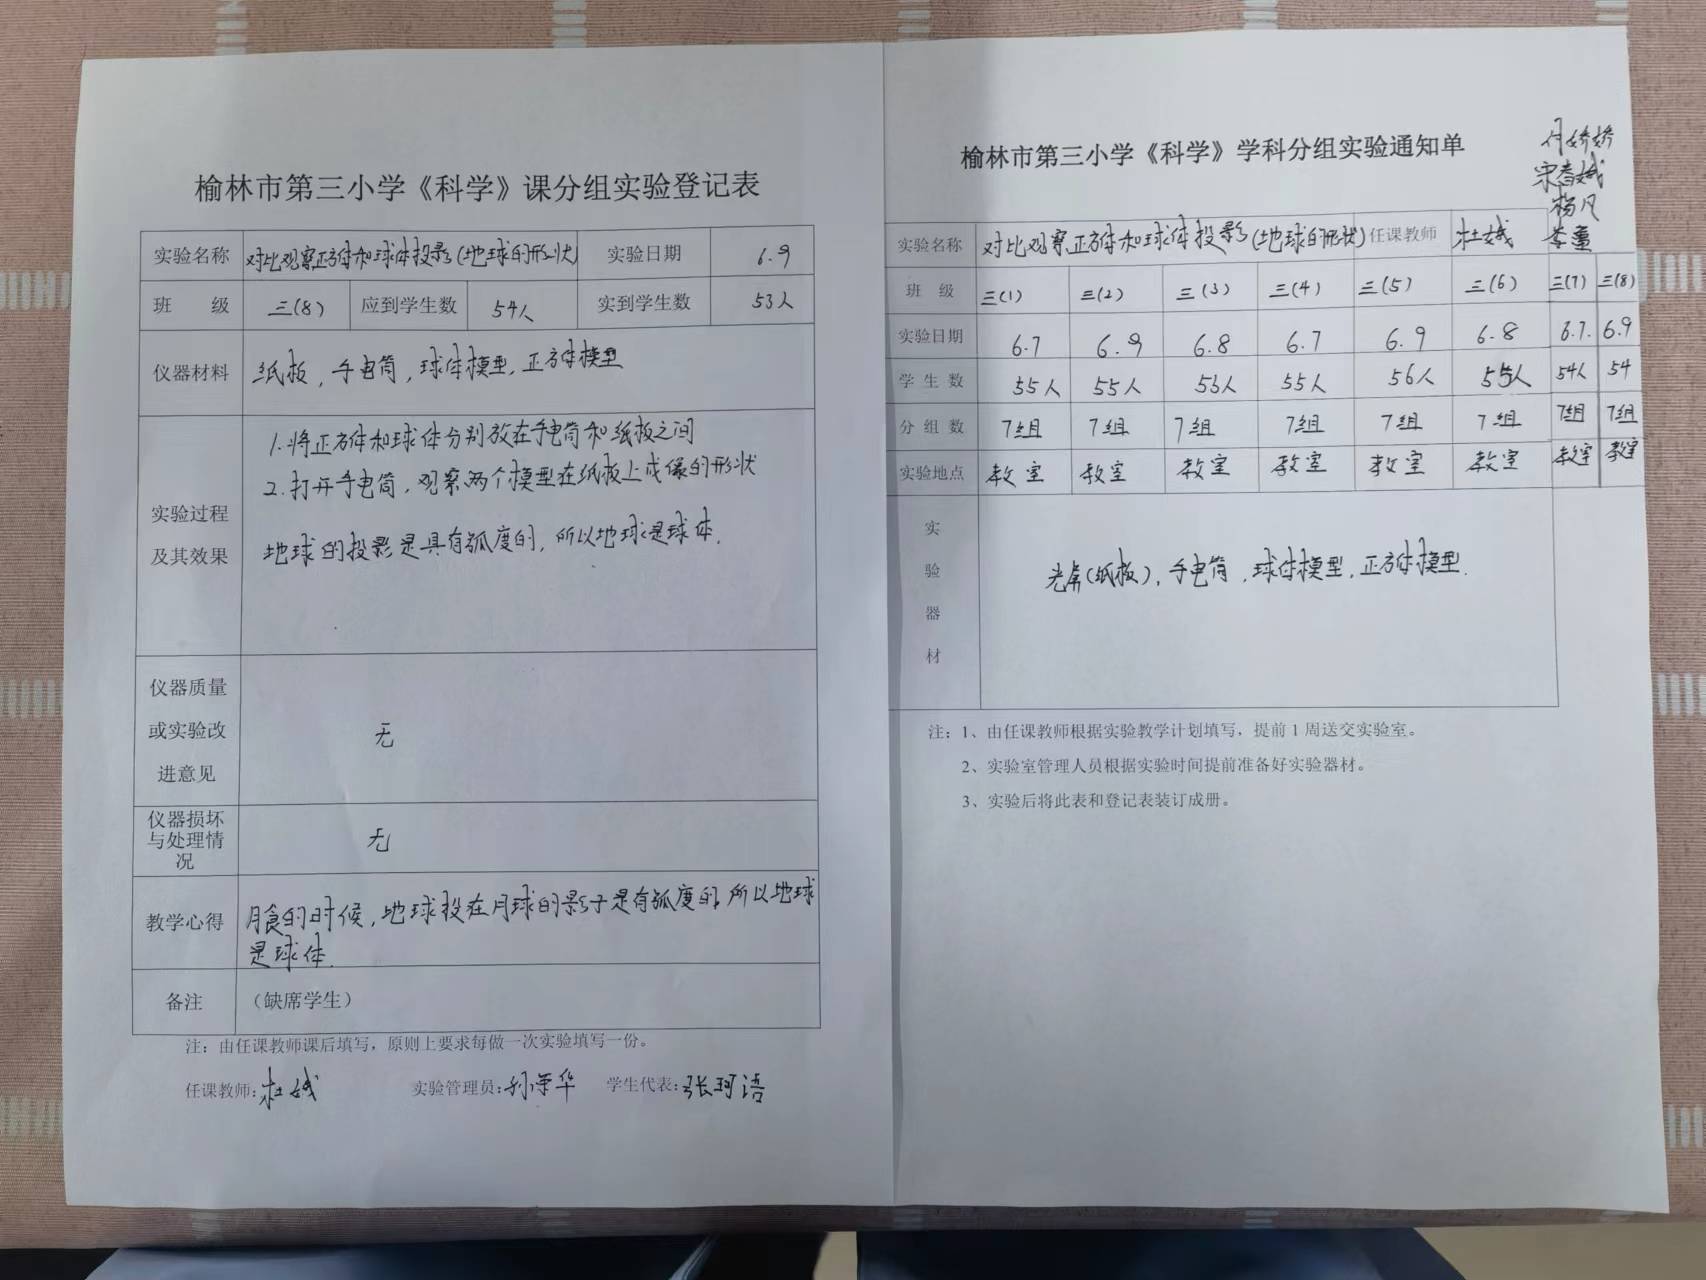 榆林市第三小学《科学》课分组实验登记表
实验名称 对比观察正方体和球体投影(地球的形状) 实验日期 6.9
班 级 三(8) 应到学生数 54人 实到学生数 53人
仪器材料 纸板，手电筒，球体模型，正方体模型
实验过程
及其效果
1.将正方体和球体分别放在手电筒和纸板之间
2.打开手电筒，观察两个模型在纸板上成像的形状
地球的投影是具有弧度的，所以地球是球体.
仪器质量
或实验改
进意见
无
仪器损坏
与处理情
况
无
教学心得
月食的时候，地球投在月球的影子是有弧度的，所以地球
是球体.
备注 （缺席学生）
注：由任课教师课后填写，原则上要求每做一次实验填写一份。
任课教师：杜娥 实验管理员： 学生代表：张珂语
榆林市第三小学《科学》学科分组实验通知单
娇娇
宋春娥
杨凡
李董
实验名称 对比观察正方体和球体投影(地球的形状) 任课教师 杜娥
班 级 三(1) 三(2) 三(3) 三(4) 三(5) 三(6) 三(7) 三(8)
实验日期 6.7 6.9 6.8 6.7 6.9 6.8 6.7. 6.9
学 生 数 55人 55人 53人 55人 56人 55人 54人 54
分 组 数 7组 7组 7组 7组 7组 7组 7组 7组
实验地点 教室 教室 教室 教室 教室 教室 教室 教室
实
验
器
材
光屏(纸板)，手电筒，球体模型，正方体模型.
注：1、由任课教师根据实验教学计划填写，提前 1 周送交实验室。
2、实验室管理人员根据实验时间提前准备好实验器材。
3、实验后将此表和登记表装订成册。